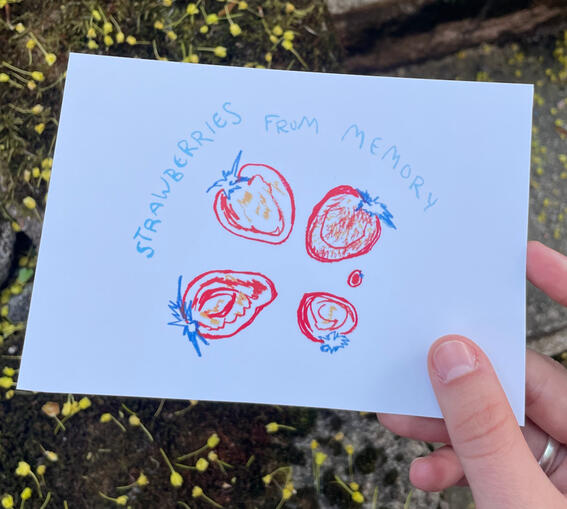 STRAWBERRIES FROM MEMORY